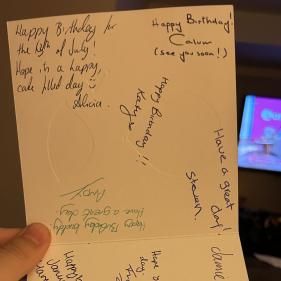 Happy Birthday for
the of July!
Hope its a happy,
cake filled day
Felicia.
Happy Birthday!
Calum
(see you soon!)
Happy Birthday!!
Kathryn
Have a great
day!
Steven.
Happy Birthday buddy
Have a great day
Andy
Jamie
Happy
Hope
day.